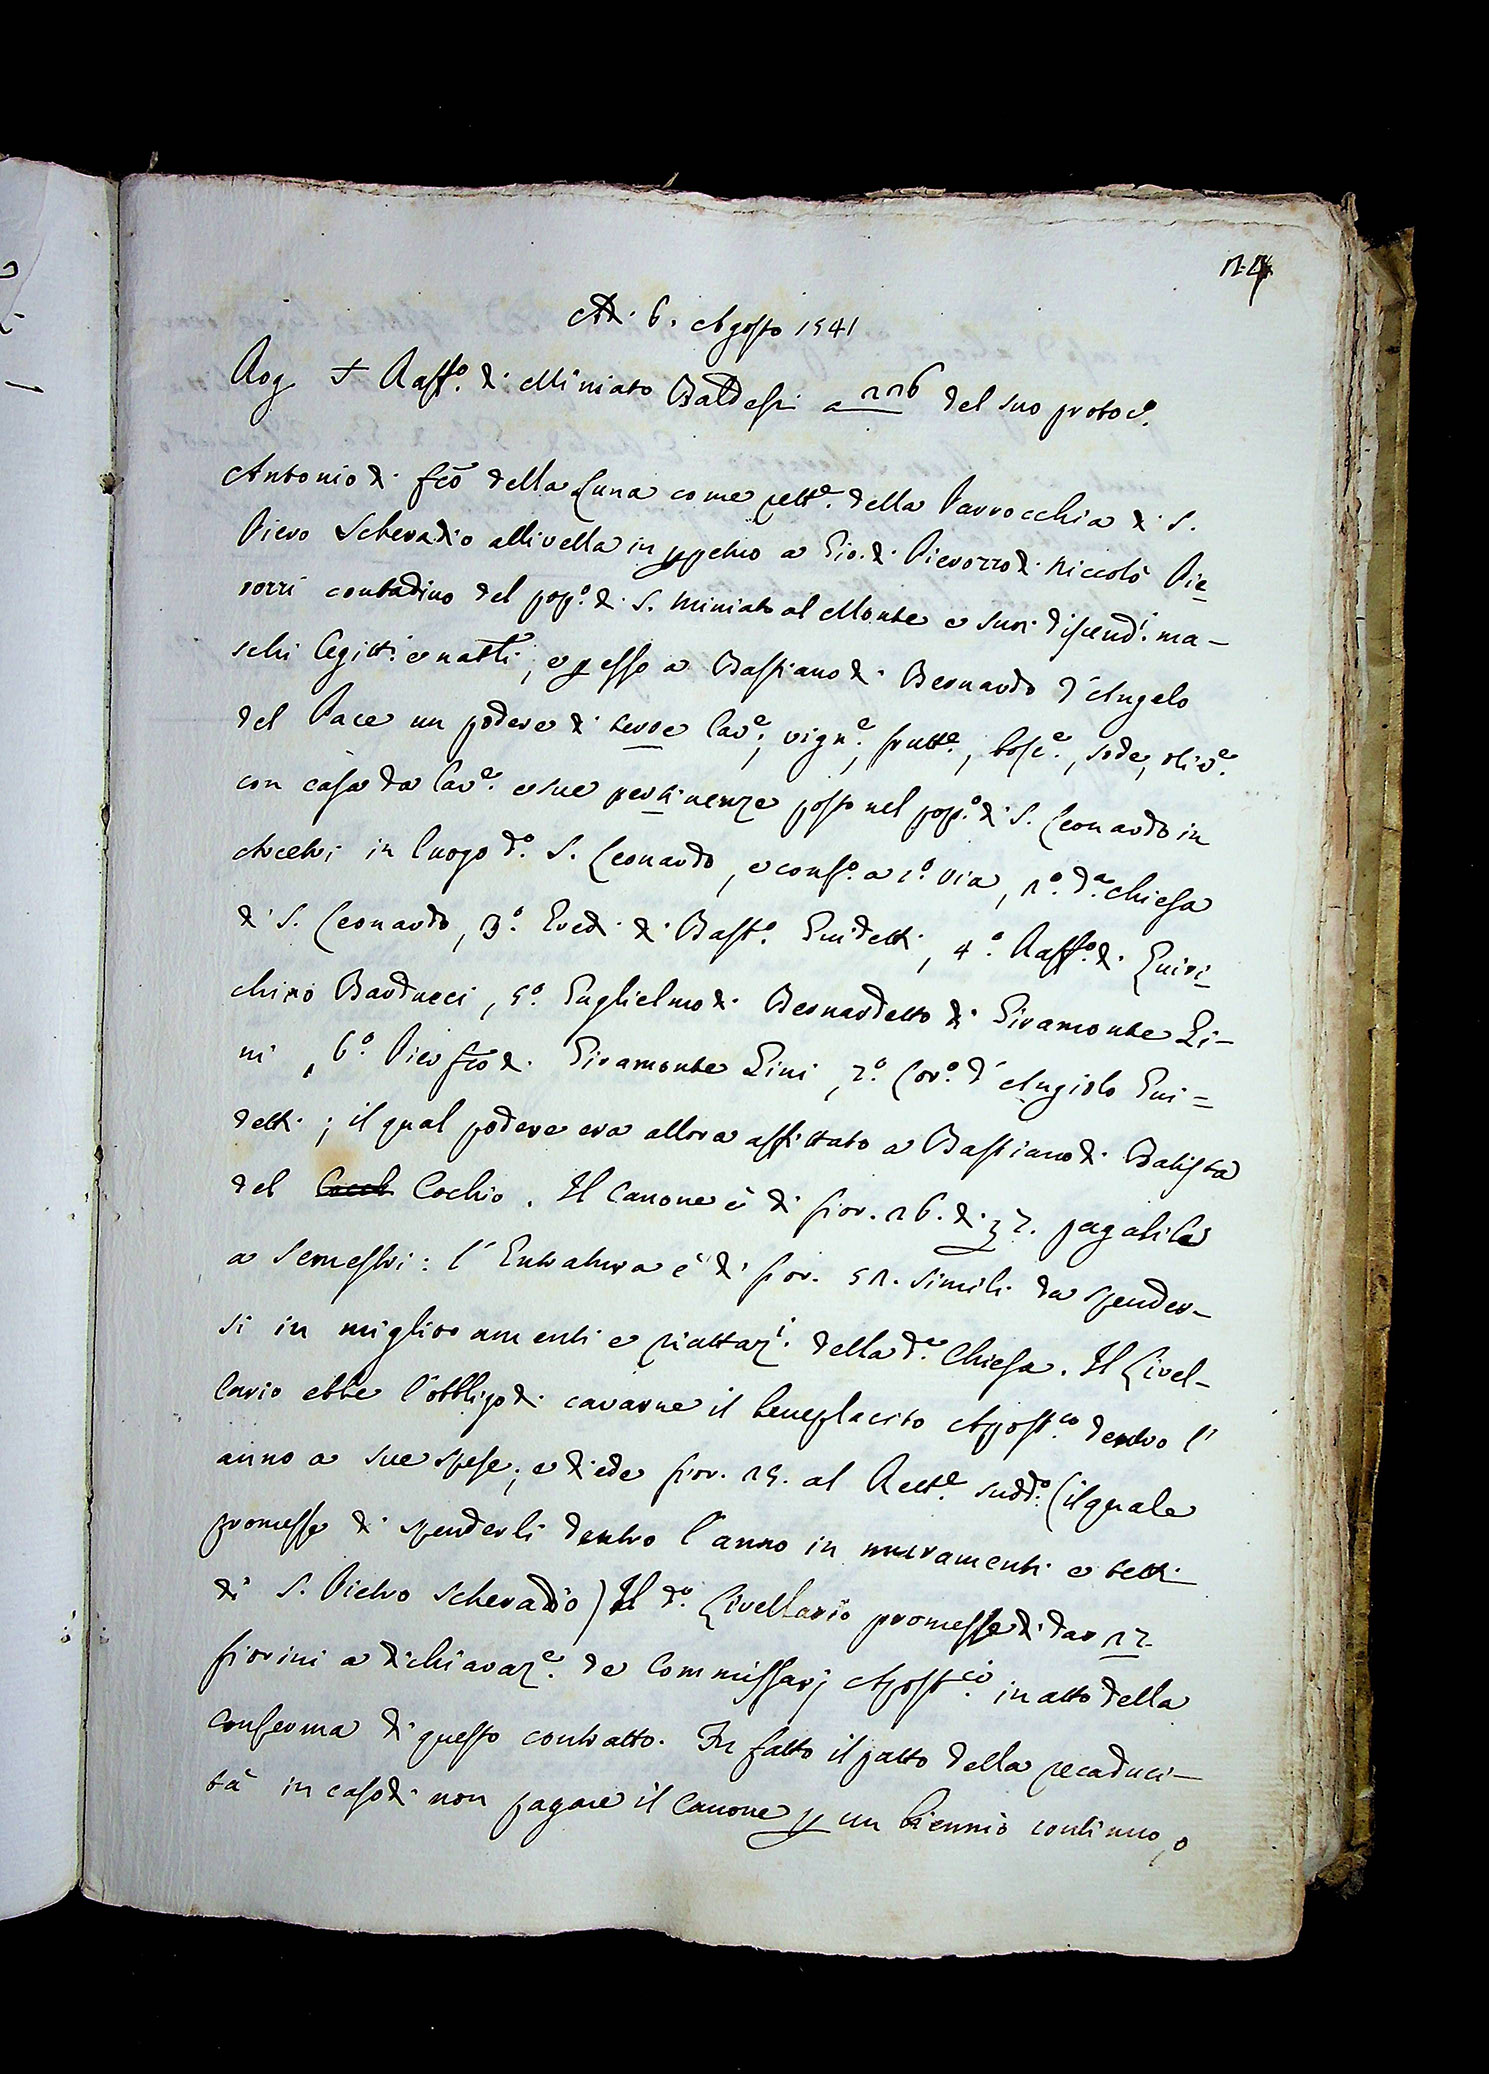 Adì 6. Agosto 1541
Rog. S Raff.º di Miniato Baldesi a 226 del suo protoc.º
Antonio di Fcō della Luna come rett.e della Parrocchia di S.
Piero Scheraggio allivella in ppetuo a Gio. di Pierozzo di Niccolò Pie
rozzi contadino del pop.º di S. Miniato al Monte e suoi discend.i ma-
schi legitt.i e natli, e p esso a Bastiano di Bernardo d'Angelo
del Pace un podere di terre lav.e, vign.e, frutt.e, bosc.e, sode, oliv.e
con casa da lav.e e sue pertinenze posto nel pop.º di S. Leonardo in
Arcetri in luogo d.º S. Leonardo, e conf.º a 1.º via, 2.º d.a chiesa
di S. Leonardo, 3.º Eredi di Bast.º Guidetti, 4.º Raff.º di Quiri
chino Barducci, 5.º Guglielmo di Bernardetto di Giramonte Li-
ni, 6.º Pier Fcō di Giramonte Lini, 7.º Lor.º d'Angiolo Gui=
detti; il qual podere era allora affittato a Bastiano di Batista
del Cocch Cochio. Il Canone è di fior. 26. di 7. pagabile
a semestri: l'Entratura è di fior. 52. simili da spender-
si in miglioramenti e riattaz.i della d.a Chiesa. Il Livel-
lario ebbe l'obbligo di cavarne il beneplacito Apost.co dentro l'
anno a sue spese, e diede fior. 25. al Rett.e sudd.º (il quale
promesse di spenderli dentro l'anno in muramenti e tetti
di S. Pietro Scheraggio) Il d.º Livellario promesse di dar 27
fiorini a dichiaraz.e de Commissarj Apost.ci in atto della
conferma di questo contratto. Fu fatto il patto della recaduci-
tà in caso di non pagare il Canone p un biennio continuo, o